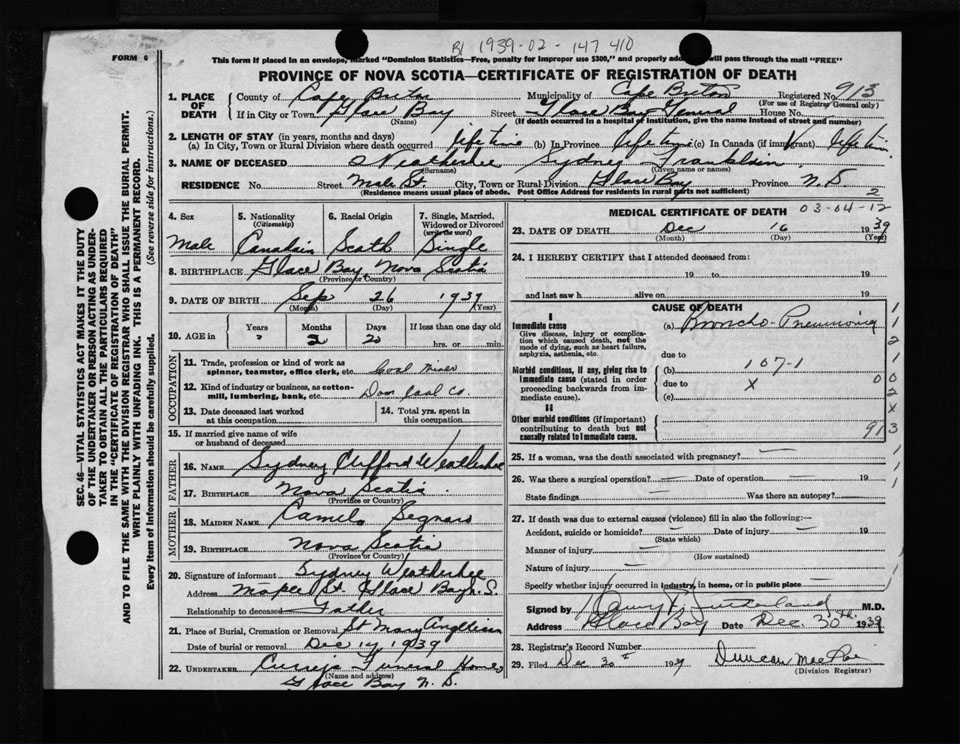 B1 1939-02-147410
This form if placed in an envelope, marked "Dominion Statistics—Free, penalty for improper use $300," and properly add will pass through the mail "FREE"
FORM 6
PROVINCE OF NOVA SCOTIA—CERTIFICATE OF REGISTRATION OF DEATH
1. PLACE OF DEATH County of Cape Breton Municipality of Cape Breton Registered No. 913
(For use of Registrar General only)
If in City or Town Glace Bay Street Glace Bay General House No.
(Name) (If death occurred in a hospital of institution, give the name instead of street and number)
2. LENGTH OF STAY (in years, months and days)
(a) In City, Town or Rural Division where death occurred life time (b) In Province life time (c) In Canada (if immigrant) life time
3. NAME OF DECEASED Weatherbee Sydney Franklin
(Surname) (Given name or names)
RESIDENCE No. Street Maple St. City, Town or Rural Division Glace Bay Province N.S.
(Residence means usual place of abode. Post Office Address for Residents in rural parts not sufficient) 2
SEC. 46—VITAL STATISTICS ACT MAKES IT THE DUTY
OF THE UNDERTAKER OR PERSON ACTING AS UNDER-
TAKER TO OBTAIN ALL THE PARTICULARS REQUIRED
IN THE "CERTIFICATE OF REGISTRATION OF DEATH"
AND TO FILE THE SAME WITH THE DIVISION REGISTRAR WHO SHALL ISSUE THE BURIAL PERMIT.
WRITE PLAINLY WITH UNFADING INK. THIS IS A PERMANENT RECORD.
Every item of Information should be carefully supplied. (See reverse side for instructions.)
4. Sex 5. Nationality (Citizenship) 6. Racial Origin 7. Single, Married, Widowed or Divorced (write the word)
Male Canadain Scoth Single
8. BIRTHPLACE Glace Bay, Nova Scotia
(Province or Country)
9. DATE OF BIRTH Sep 26 1939
(Month) (Day) (Year)
10. AGE in Years Months Days If less than one day old
2 20 hrs. or min.
OCCUPATION
11. Trade, profession or kind of work as
spinner, teamster, office clerk, etc. Coal Miner
12. Kind of industry or business, as cotton-
mill, lumbering, bank, etc. Dom Coal Co.
13. Date deceased last worked
at this occupation
14. Total yrs. spent in
this occupation
15. If married give name of wife
or husband of deceased
FATHER
16. NAME Sydney Clifford Weatherbee
17. BIRTHPLACE Nova Scotia
(Province or Country)
MOTHER
18. MAIDEN NAME
19. BIRTHPLACE Nova Scotia
(Province or Country)
20. Signature of informant Sydney Weatherbee
Address Maple St. Glace Bay N.S.
Relationship to deceased Father
21. Place of Burial, Cremation or Removal St Mary
Date of burial or removal Dec 17 1939
22. UNDERTAKER Funeral Home
(Name and address)
Glace Bay N.S.
MEDICAL CERTIFICATE OF DEATH 03-04-12
23. DATE OF DEATH Dec 16 1939
(Month) (Day) (Year)
24. I HEREBY CERTIFY that I attended deceased from:
19 to 19
and last saw h alive on 19
CAUSE OF DEATH
I
Immediate cause (a) Broncho-Pneumonia
Give disease, injury or complica-
tion which caused death, not the
mode of dying, such as heart failure,
asphyxia, asthenia, etc.
due to
Morbid conditions, if any, giving rise to
immediate cause (stated in order
proceeding backwards from im-
mediate cause).
(b) 107-1
due to X
(c)
II
Other morbid conditions (if important)
contributing to death but not
causally related to immediate cause.
913
25. If a woman, was the death associated with pregnancy?
26. Was there a surgical operation? Date of operation 19
State findings Was there an autopsy?
27. If death was due to external causes (violence) fill in also the following:
Accident, suicide or homicide? Date of injury 19
(State which)
Manner of injury
(How sustained)
Nature of injury
Specify whether injury occurred in industry, in home, or in public place
Signed by Sutherland M.D.
Address Glace Bay Date Dec. 30th 1939
28. Registrar's Record Number
29. Filed Dec 30th 1939 Duncan
(Division Registrar)